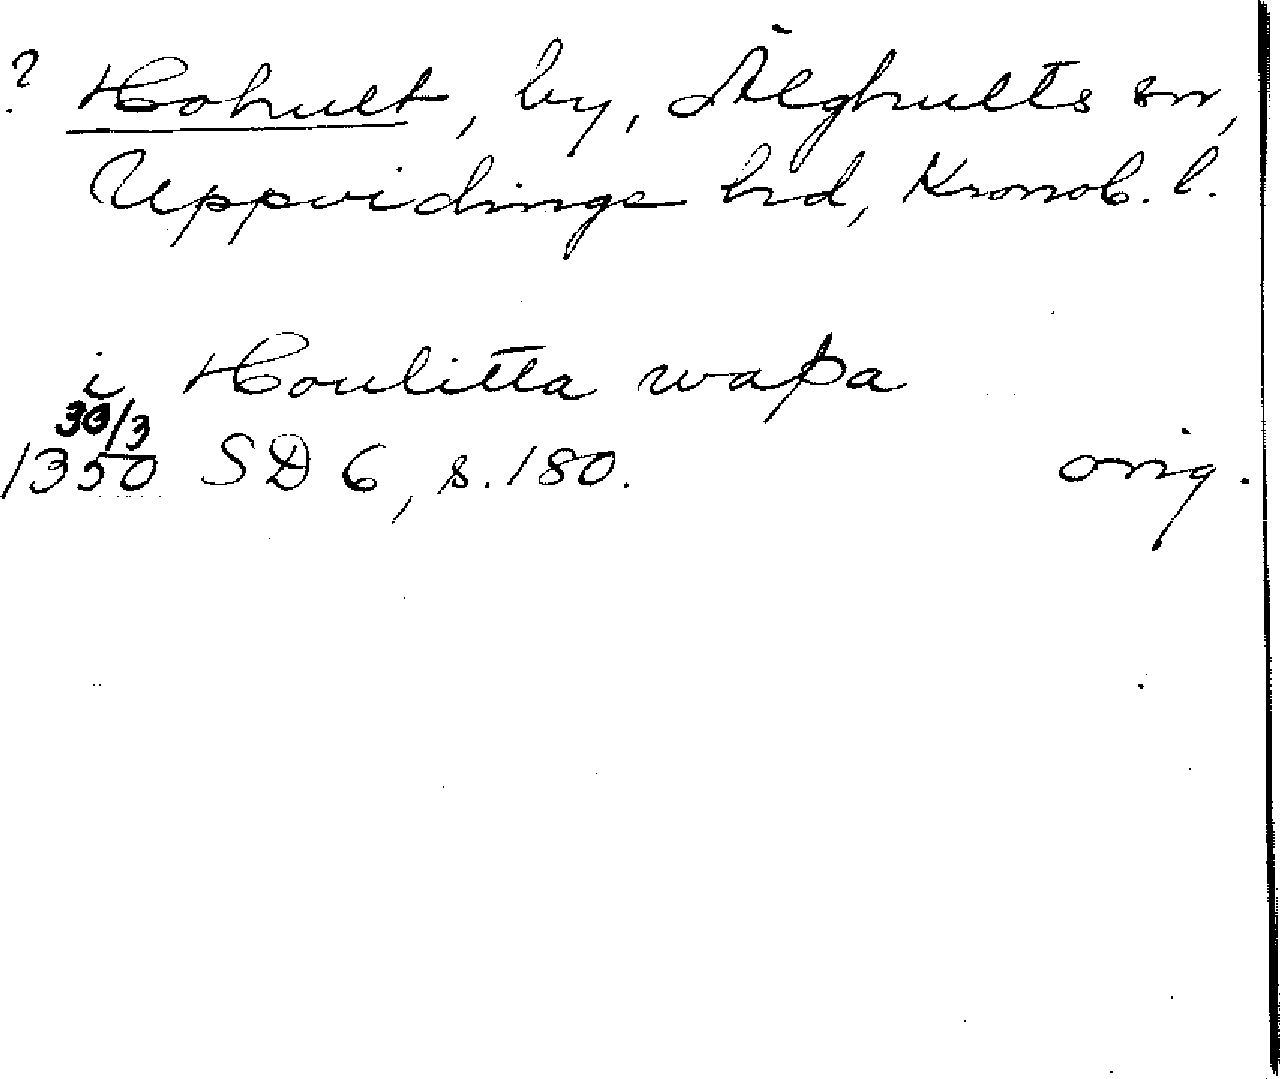 ? Hohult, by, Älghults sn,
Uppvidinge hrd, Kronob. l.
i Houlitta waþa
30/3
1350 SD 6, s. 180. orig.